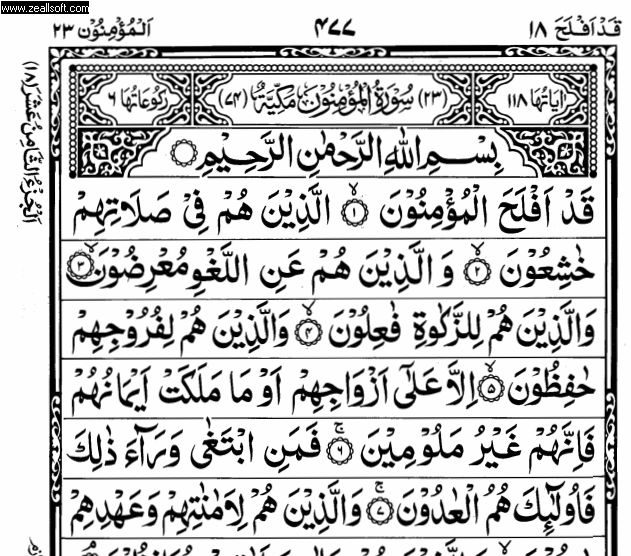 www.zeallsoft.com
قَدْ اَفْلَحَ ١٨ ٤٧٧ اَلْمُؤْمِنُوْن ٢٣
اَلْجُزْءُ الثَّامِنُ عَشَرَ (١٨)
اٰیَاتُهَا ١١٨ (٢٣) سُوْرَةُ الْمُؤْمِنُوْنَ مَكِّيَّةٌ (٧٤) رُكُوْعَاتُهَا ٦
بِسْمِ اللّٰهِ الرَّحْمٰنِ الرَّحِيْمِ
قَدْ اَفْلَحَ الْمُؤْمِنُوْنَ ۙ‏﴿١﴾ الَّذِيْنَ هُمْ فِيْ صَلَاتِهِمْ
خٰشِعُوْنَ ۙ‏﴿٢﴾ وَ الَّذِيْنَ هُمْ عَنِ اللَّغْوِ مُعْرِضُوْنَ ۙ‏﴿٣﴾
وَالَّذِيْنَ هُمْ لِلزَّكٰوةِ فٰعِلُوْنَ ۙ‏﴿٤﴾ وَالَّذِيْنَ هُمْ لِفُرُوْجِهِمْ
حٰفِظُوْنَ ۙ‏﴿٥﴾ اِلَّا عَلٰٓى اَزْوَاجِهِمْ اَوْ مَا مَلَكَتْ اَيْمَانُهُمْ
فَاِنَّهُمْ غَيْرُ مَلُوْمِيْنَ ۚ‏﴿٦﴾ فَمَنِ ابْتَغٰى وَرَآءَ ذٰلِكَ
فَاُولٰٓئِكَ هُمُ الْعٰدُوْنَ ۚ‏﴿٧﴾ وَالَّذِيْنَ هُمْ لِاَمٰنٰتِهِمْ وَعَهْدِهِمْ